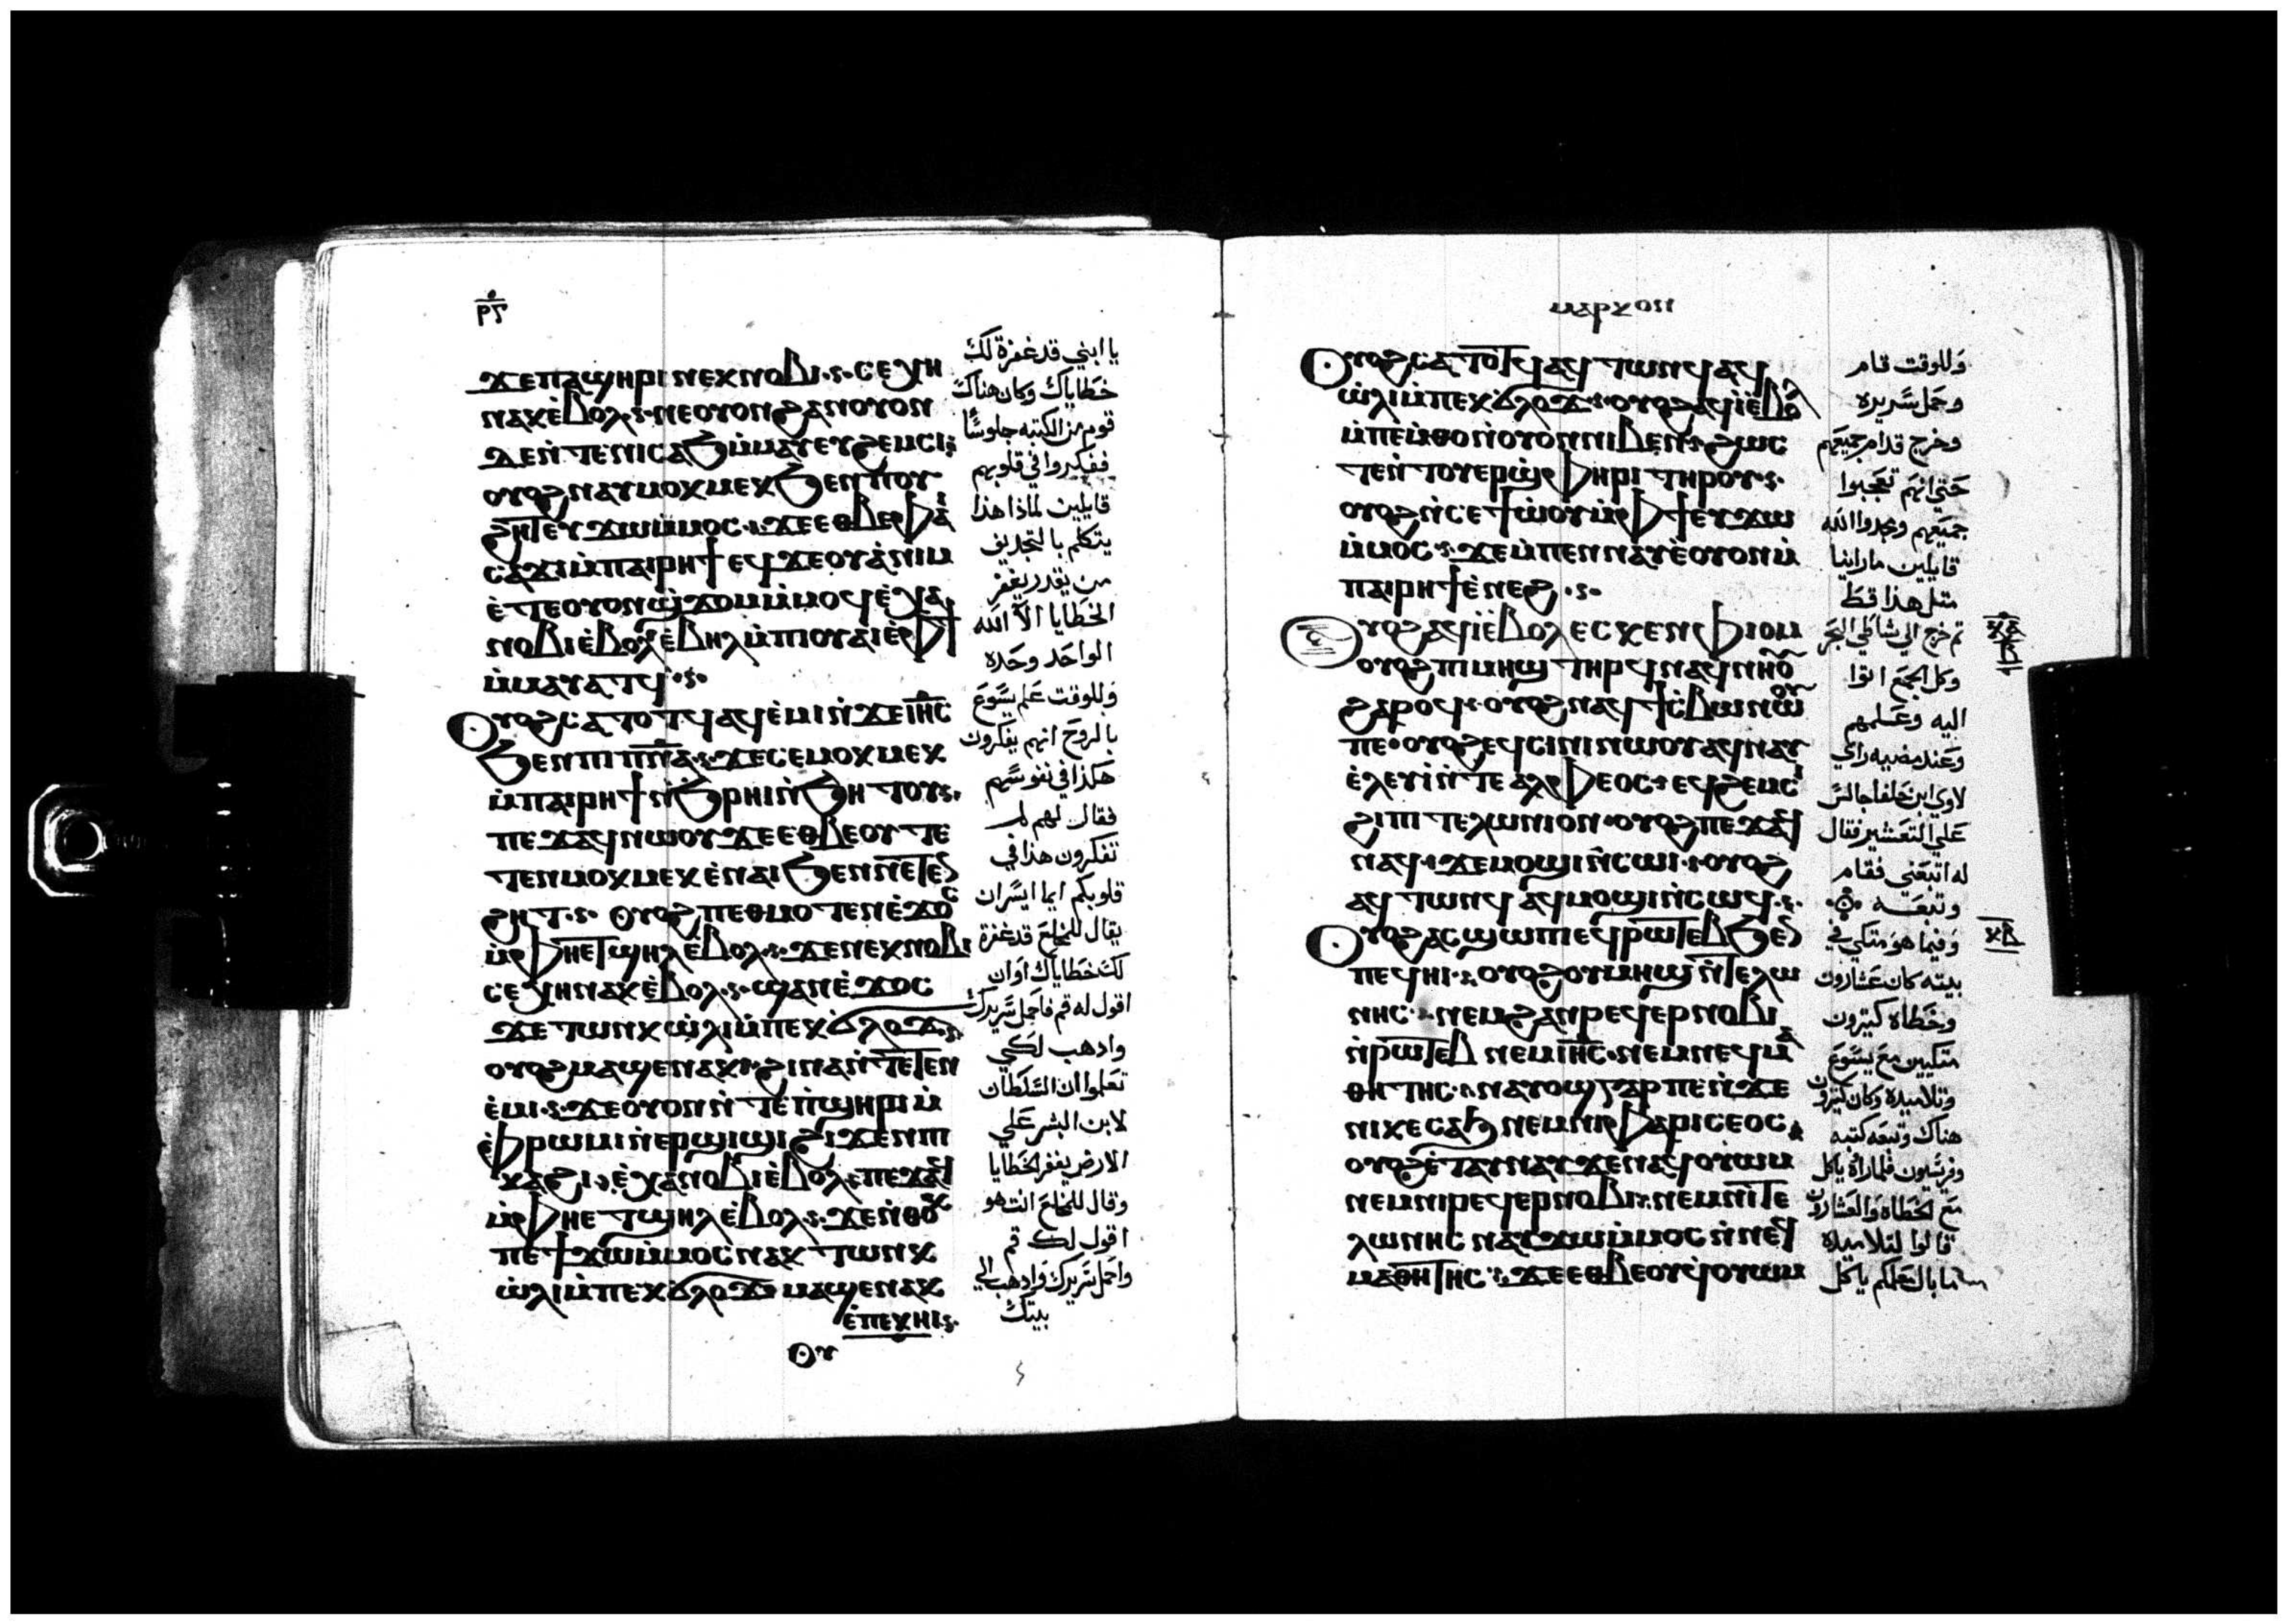 ϫⲉⲡⲁϣⲏⲣⲓ ⲛⲉⲕⲛⲟⲃⲓ ⲥⲉⲭⲏ
ⲛⲁⲕⲉ̀ⲃⲟⲗ ⲛⲉⲟⲩⲟⲛ ϩⲁⲛⲟⲩⲟⲛ
ⲇⲉⲛ̀ⲧⲉⲛⲓⲥⲁϧ ⲙ̀ⲙⲁⲩ ⲉⲩϩⲉⲙⲥⲓ
ⲟⲩⲟϩ ⲛⲁⲩⲙⲟⲕⲙⲉⲕ ϧⲉⲛⲡⲟⲩ
ϩⲏⲧ ⲉⲩϫⲱⲙ̀ⲙⲟⲥ ϫⲉⲉⲑⲃⲉⲫⲁⲓ
ⲥⲁϫⲓ ⲙ̀ⲡⲁⲓⲣⲏϯ ⲉϥϫⲉⲟⲩⲁ̀ ⲛⲓⲙ
ⲉ̀ⲧⲉⲟⲩⲟⲛϣϫⲟⲙ ⲙ̀ⲙⲟϥ ⲉ̀ⲭⲁ
ⲛⲟⲃⲓ ⲉ̀ⲃⲟⲗ ⲉ̀ⲃⲏⲗ ⲙ̀ⲡⲓⲟⲩⲁⲓ ⲉ̀ⲫϯ
ⲙ̀ⲙⲁⲩⲁⲧϥ
Ⲟⲩⲟϩ ⲥⲁⲧⲟⲧϥ ⲁϥⲉ̀ⲙⲓ ⲛ̀ϫⲉⲓⲏ̅ⲥ̅
ϧⲉⲛⲡⲓⲡ̅ⲛ̅ⲁ̅ ϫⲉⲥⲉⲙⲟⲕⲙⲉⲕ
ⲙ̀ⲡⲁⲓⲣⲏϯ ⲛ̀ϧⲣⲏⲓ ⲛ̀ϧⲏⲧⲟⲩ
ⲡⲉϫⲁϥ ⲛⲱⲟⲩ ϫⲉⲉⲑⲃⲉⲟⲩ ⲧⲉ
ⲧⲉⲛⲙⲟⲕⲙⲉⲕ ⲉ̀ⲛⲁⲓ ϧⲉⲛⲛⲉⲧⲉⲛ
ϩⲏⲧ Ⲟⲩⲟϩ ⲡⲉⲑⲙⲟⲧⲉⲛ ⲉ̀ϫⲟⲥ
ⲙ̀ⲫⲏⲉⲧϣⲏⲗ ⲉ̀ⲃⲟⲗ ϫⲉⲛⲉⲕⲛⲟⲃⲓ
ⲥⲉⲭⲏ ⲛⲁⲕ ⲉ̀ⲃⲟⲗ ϣⲁⲛ ⲉ̀ϫⲟⲥ
ϫⲉⲧⲱⲛⲕ ⲱ̀ⲗⲓ ⲙ̀ⲡⲉⲕϭⲗⲟϫ
ⲟⲩⲟϩ ⲙⲁϣⲉⲛⲁⲕ ϩⲓⲛⲁ ⲛ̀ⲧⲉⲧⲉⲛ
ⲉ̀ⲙⲓ ϫⲉⲟⲩⲟⲛ ⲛ̀ⲧⲉⲡ̀ϣⲏⲣⲓ ⲙ̀
ⲫ̀ⲣⲱⲙⲓ ⲛ̀ⲉⲣϣⲓϣⲓ ϩⲓϫⲉⲛⲡⲓ
ⲕⲁϩⲓ ⲉ̀ⲭⲁⲛⲟⲃⲓ ⲉ̀ⲃⲟⲗ ⲡⲉϫⲁϥ
ⲙ̀ⲫⲏⲉⲧϣⲏⲗ ⲉ̀ⲃⲟⲗ ϫⲉⲛ̀ⲑⲟⲕ
ⲡⲉϯϫⲱⲙ̀ⲙⲟⲥ ⲛⲁⲕ ⲧⲱⲛⲕ
ⲱ̀ⲗⲓ ⲙ̀ⲡⲉⲕϭⲗⲟϫ ⲙⲁϣⲉⲛⲁⲕ
ⲉ̀ⲡⲉⲕⲏⲓ
Ⲟⲩ
يا ابني قد غفرة لك
خطاياك وكان هناك
قوم من الكتبه جلوسًا
ففكروا في قلوبهم
قايلين لماذا هذا
يتكلم بالتجديف
من يقدر يغفر
الخطايا الا الله
الواحد وحده
وللوقت علم يسوع
بالروح انهم يفكرون
هكذا في نفوسهم
فقال لهم لم
تفكرون هذا في
قلوبكم ايما ايسران
يقال للمخلع قد غفرة
لك خطاياك اوان
اقول له قم فاحمل سريرك
وادهب لكي
تعلموا ان السلطان
لابن البشر علي
الارض يغفر الخطايا
وقال للمخلع انت هو
اقول لك قم
واحمل سريرك وادهب الي
بيتك
ⲙⲁⲣⲕⲟⲛ
Ⲟⲩⲟϩ ⲥⲁⲧⲟⲧϥ ⲁϥⲧⲱⲛϥ ⲁϥ
ⲱ̀ⲗⲓ ⲙ̀ⲡⲉϥϭⲗⲟϫ ⲟⲩⲟϩ ⲁϥⲓ̀ ⲉ̀ⲃⲟⲗ
ⲙ̀ⲡⲉⲙ̀ⲑⲟ ⲛ̀ⲟⲩⲟⲛ ⲛⲓⲃⲉⲛ ϩⲱⲥ
ⲧⲉⲛ̀ⲧⲟⲩⲉⲣϣ̀ⲫⲏⲣⲓ ⲧⲏⲣⲟⲩ
ⲟⲩⲟϩ ⲛ̀ⲥⲉϯⲱ̀ⲟⲩ ⲙ̀ⲫϯ ⲉⲩϫⲱ
ⲙ̀ⲙⲟⲥ ϫⲉⲙ̀ⲡⲉⲛⲛⲁⲩ ⲉ̀ⲟⲩⲟⲛ ⲙ̀
ⲡⲁⲓⲣⲏϯ ⲉ̀ⲛⲉϩ
Ⲟⲩⲟϩ ⲁϥⲓ̀ ⲉ̀ⲃⲟⲗ ⲉⲥⲕⲉⲛ ⲫⲓⲟⲙ
ⲟⲩⲟϩ ⲡⲓⲙⲏϣ ⲧⲏⲣϥ ⲛⲁϥⲛⲏⲟⲩ
ϩⲁⲣⲟϥ ⲟⲩⲟϩ ⲛⲁϥϯⲥ̀ⲃⲱ ⲛⲱⲟⲩ
ⲡⲉ ⲟⲩⲟϩ ⲉϥⲥⲓⲛⲓⲱⲟⲩ ⲁϥⲛⲁⲩ
ⲉ̀ⲗⲉⲩⲓ̀ ⲛ̀ⲧⲉ ⲁⲗⲫⲉⲟⲥ ⲉϥϩⲉⲙⲥⲓ
ϩⲓⲡⲓⲧⲉⲗⲱⲛⲓⲟⲛ ⲟⲩⲟϩ ⲡⲉϫⲁϥ
ⲛⲁϥ ϫⲉⲙⲟϣⲓ ⲛ̀ⲥⲱⲓ ⲟⲩⲟϩ
ⲁϥⲧⲱⲛϥ ⲁϥⲙⲟϣⲓ ⲛ̀ⲥⲱϥ
Ⲟⲩⲟϩ ⲁⲥϣⲱⲡⲓ ⲉϥⲣⲱⲧⲉⲃ ϧⲉⲛ
ⲡⲉϥⲏⲓ ⲟⲩⲟϩ ⲟⲩⲙⲏϣ ⲛ̀ⲧⲉⲗⲱ
ⲛⲏⲥ ⲛⲉⲙϩⲁⲛⲣⲉϥⲉⲣⲛⲟⲃⲓ
ⲛ̀ⲣⲱⲧⲉⲃ ⲛⲉⲙⲓⲏ̅ⲥ̅ ⲛⲉⲙⲛⲉϥⲙⲁ
ⲑⲏⲧⲏⲥ ⲛⲁⲩⲟϣ ⲅⲁⲣ ⲡⲉ ⲛ̀ϫⲉ
ⲛⲓⲕⲉⲥⲁϧ ⲛⲉⲙⲛⲓⲫⲁⲣⲓⲥⲉⲟⲥ
ⲟⲩⲟϩ ⲉ̀ⲧⲁⲩⲛⲁⲩ ϫⲉⲛⲁϥⲟⲩⲱⲙ
ⲛⲉⲙⲛⲓⲣⲉϥⲉⲣⲛⲟⲃⲓ ⲛⲉⲙⲛⲓⲧⲉ
ⲗⲱⲛⲏⲥ ⲛⲁⲩϫⲱⲙ̀ⲙⲟⲥ ⲛ̀ⲛⲉϥ
ⲙⲁⲑⲏⲧⲏⲥ ϫⲉⲉⲑⲃⲉⲟⲩ ϥⲟⲩⲱⲙ
وللوقت قام
وحمل سريره
وخرج قدام جميعهم
حتي انهم تعجبوا
جميعهم ومجدوا الله
قايلين ماراينا
متل هذا قط
تم خرج الي شاطي البحر
وكل الجمع اتوا
اليه وعلمهم
وعند مضيه راي
لاوي ابن حلفا جالس
علي التعشير فقال
له اتبعني فقام
وتبعه
وفيما هو متكي في
بيته كان عشارون
وخطاه كتيرون
متكيين مع يسوع
وتلاميده وكان كتيرون
هناك وتبعه كتبه
وفريسيون فلما راوه ياكل
مع الخطاه والعشارون
قالوا لتلاميده
ما بال معلمكم ياكل